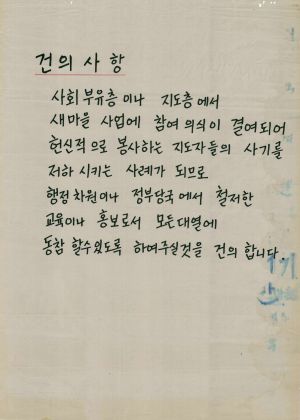 건의사항
사회 부유층이나 지도층에서
새마을 사업에 참여 의식이 결여되어
헌신적으로 봉사하는 지도자들의 사기를
저하 시키는 사례가 되므로
행정차원이나 정부당국에서 철저한
교육이나 홍보로서 모든대열에
동참 할수있도록 하여주실것을 건의 합니다.